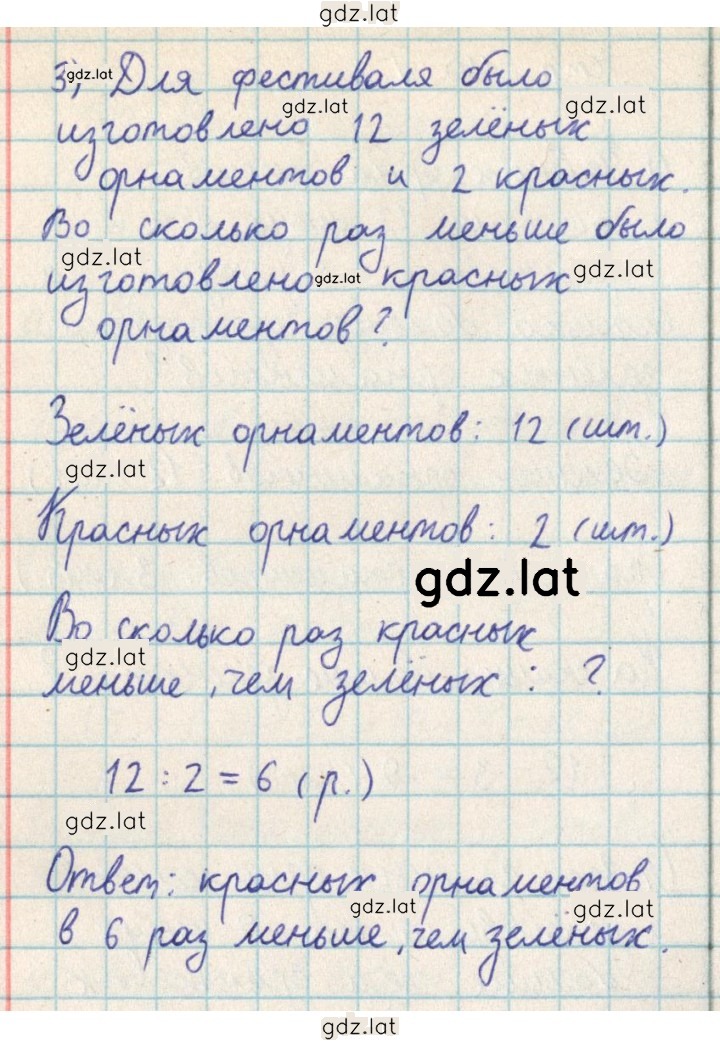 gdz.lat
3) Для фестиваля было
gdz.lat
gdz.lat
gdz.lat
изготовлено 12 зелёных
орнаментов и 2 красных.
Во сколько раз меньше было
gdz.lat
gdz.lat
gdz.lat
изготовлено красных
орнаментов?
Зелёных орнаментов: 12 (шт.)
gdz.lat
Красных орнаментов: 2 (шт.)
gdz.lat
Во сколько раз красных
gdz.lat
меньше, чем зелёных: ?
12 : 2 = 6 (р.)
gdz.lat
Ответ: красных орнаментов
gdz.lat
gdz.lat
в 6 раз меньше, чем зелёных.
gdz.lat